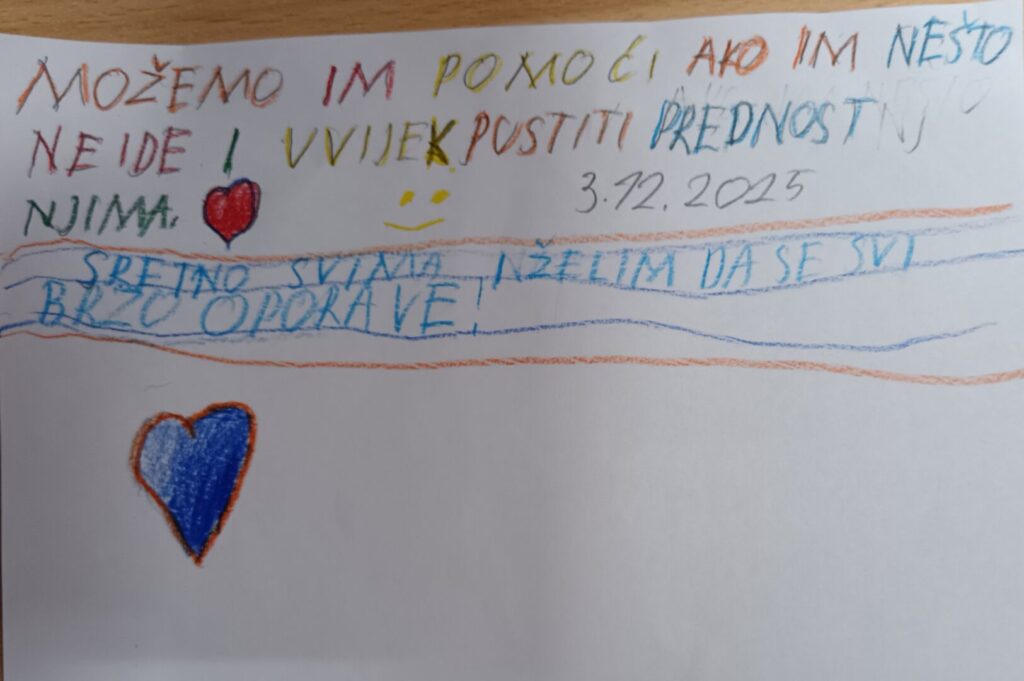 MOŽEMO IM POMOĆI AKO IM NEŠTO
NE IDE I UVIJEK PUSTITI PREDNOST
NJIMA.
3.12.2025
SRETNO SVIMA, ŽELIM DA SE SVI
BRZO OPORAVE!